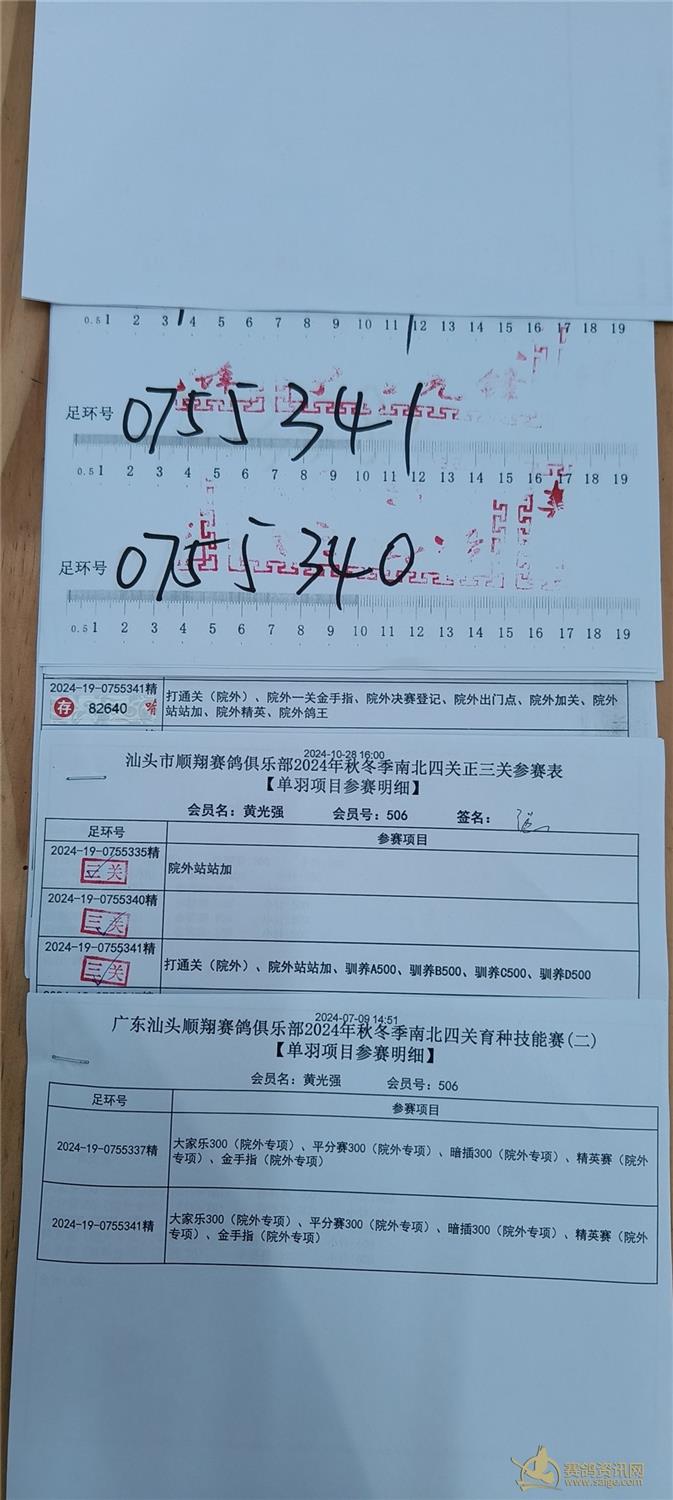 0.5 1 2 3 4 5 6 7 8 9 10 11 12 13 14 15 16 17 18 19
足环号 0755341
0.5 1 2 3 4 5 6 7 8 9 10 11 12 13 14 15 16 17 18 19
足环号 0755340
0.5 1 2 3 4 5 6 7 8 9 10 11 12 13 14 15 16 17 18 19
2024-19-0755341精
存 82640
打通关（院外）、院外一关金手指、院外决赛登记、院外出门点、院外加关、院外
站站加、院外精英、院外鸽王
2024-10-28 16:00
汕头市顺翔赛鸽俱乐部2024年秋冬季南北四关正三关参赛表
【单羽项目参赛明细】
会员名：黄光强 会员号：506 签名：
足环号 参赛项目
2024-19-0755335精
三关
院外站站加
2024-19-0755340精
三关
2024-19-0755341精
三关
打通关（院外）、院外站站加、驯养A500、驯养B500、驯养C500、驯养D500
2024-07-09 14:51
广东汕头顺翔赛鸽俱乐部2024年秋冬季南北四关育种技能赛(二)
【单羽项目参赛明细】
会员名：黄光强 会员号：506
足环号 参赛项目
2024-19-0755337精
大家乐300（院外专项）、平分赛300（院外专项）、暗插300（院外专项）、精英赛（院外
专项）、金手指（院外专项）
2024-19-0755341精
大家乐300（院外专项）、平分赛300（院外专项）、暗插300（院外专项）、精英赛（院外
专项）、金手指（院外专项）
赛鸽资讯网
www.saige.com